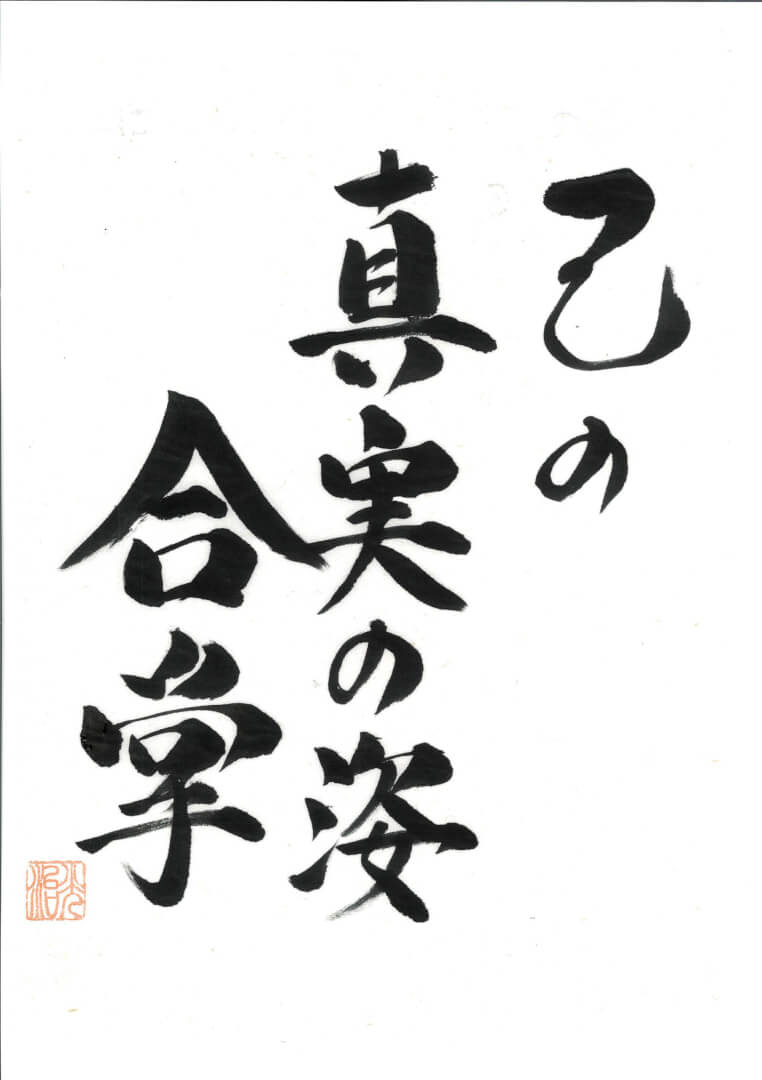 己の
真実の姿
合掌